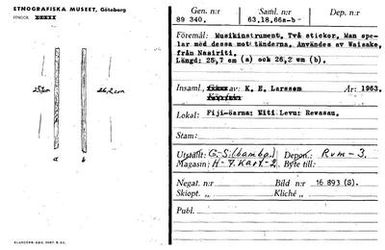 ETNOGRAFISKA MUSEET, Göteborg
25,7cm
26,2 cm
a
b
Gen. n:r
89 340.
Saml. n:r
63,18,66a-b
Dep. n:r
Föremål: Musikinstrument, Två stickor, Man spe-
lar med dessa mot tänderna, Användes av Waisake,
från Nasiriti.
Längd: 25,7 cm (a) och 26,2 cm (b).
Insaml. av K, E, Larsson
År: 1963.
Lokal: Fiji-öarna: Viti Levu: Rewasau,
Stam:
Utställt: G. S. (bambp.)
Depon: Rum-3.
Magasin: H-7. Kart-2
Bytt till:
Negat. n:r
Bild n:r 16 893 (S).
Skiopt. „
Kliché „
Publ.